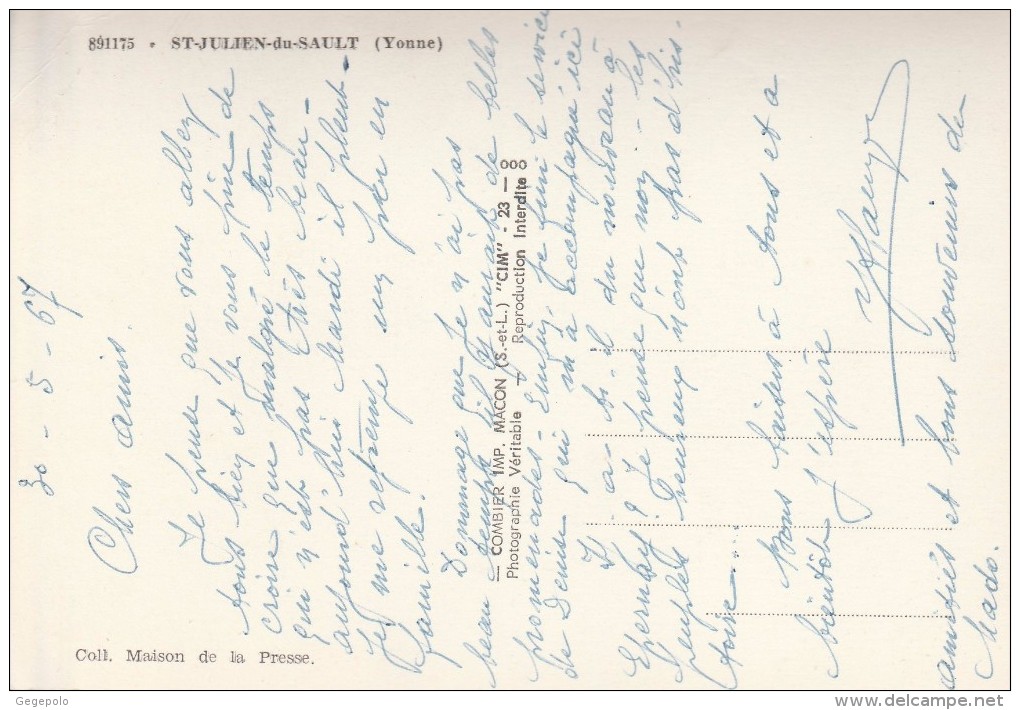 891175 - ST-JULIEN-du-SAULT (Yonne)
30-5-67
Chers amis
Je pense que vous allez
tous bien et je vous prie de
croire que malgré le temps
qui n'est pas très beau -
aujourd'hui Mardi il pleut -
je me retrempe un peu en
famille.
Dommage que je n'ai pas
beau temps il y aurait de belles
promenades. Enfin, je suis le service
de Denise qui m'a accompagné ici
Y a-t-il du nouveau à
Epernay? Je pense que non - les
peuples heureux n'ont pas d'his-
toire.
Bons baisers à tous et à
bientôt j'espère
amitiés et bons souvenirs de
Mado.
— COMBIER IMP. MACON (S.-et-L.) "CIM" - 23 — 000
Photographie Véritable — Reproduction Interdite
Coll. Maison de la Presse.
Gegepolo
www.delcampe.net